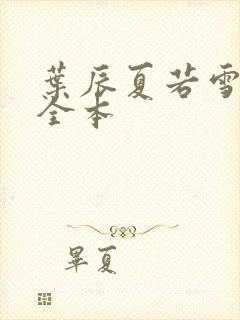 葉辰夏若雪
全本
畢夏